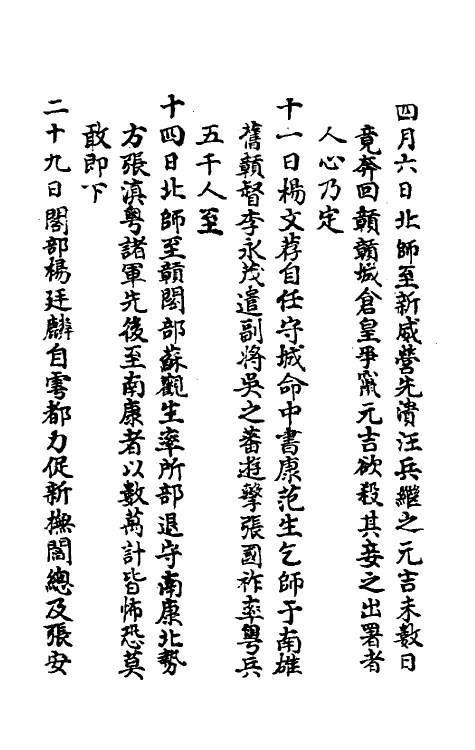 四月六日北師至新威營先潰汪兵繼之元吉未數日
竟奔回贛贛城倉皇爭竄元吉欲殺其妾之出署者
人心乃定
十一日楊文荐自任守城命中書康范生乞師于南雄
舊贛督李永茂遣副將吳之蕃遊擊張國祚率粵兵
五千人至
十四日北師至贛閣部蘇觀生率所部退守南康北勢
方張滇粵諸軍先後至南康者以數萬計皆怖恐莫
敢即下
二十九日閣部楊廷麟自雩都力促新撫閻總及張安